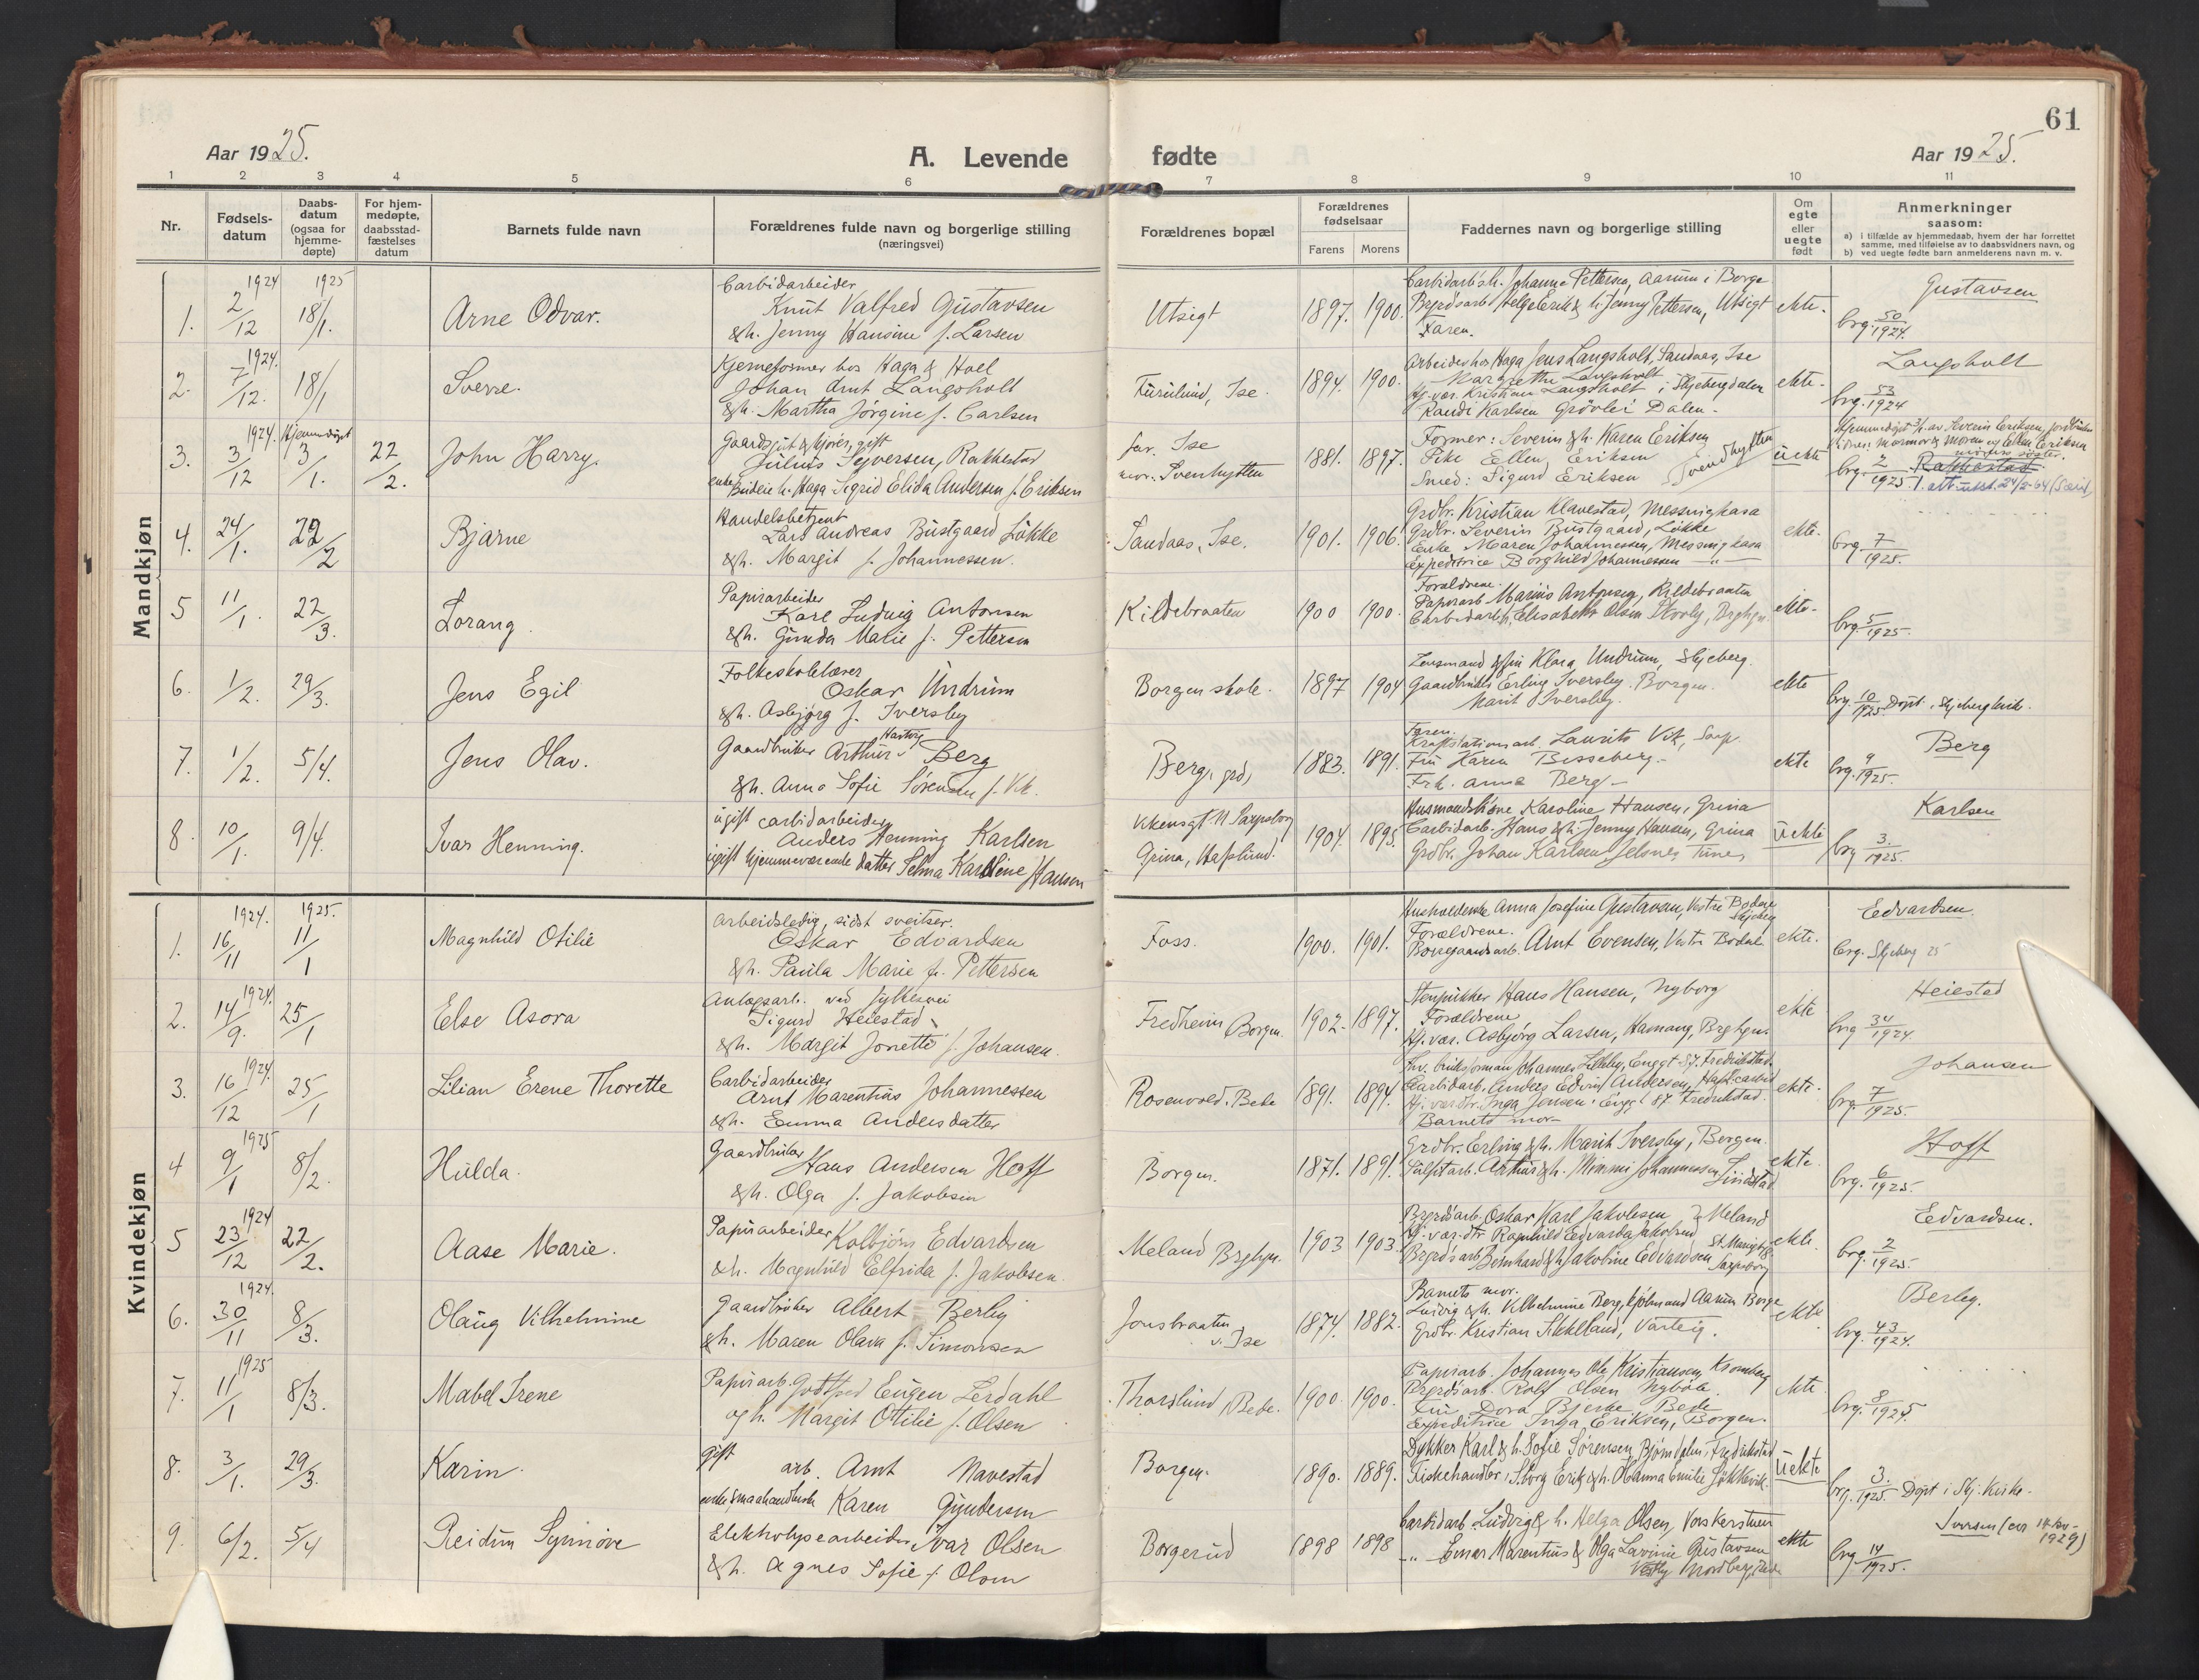 61
Aar 1925.
A. Levende fødte
Aar 1925.
1 2 3 4 5 6 7 8 9 10 11
Nr.
Fødsels-
datum
Daabs-
datum
(ogsaa for
hjemme-
døpte)
For hjem-
medøpte,
daabsstad-
fæstelses
datum
Barnets fulde navn
Forældrenes fulde navn og borgerlige stilling
(næringsvei)
Forældrenes bopæl
Forældrenes
fødselsaar
Farens Morens
Faddernes navn og borgerlige stilling
Om
egte
eller
uegte
født
Anmerkninger
saasom:
a) i tilfælde av hjemmedaab, hvem der har forrettet
samme, med tilføielse av to daabsvidners navn, og
b) ved uegte fødte barn anmelderens navn m. v.
Mandkjøn
1. 1924 2/12 1925 18/1. Arne Odvar.
Carbidarbeider
Knut Valfred Gustavsen
&h. Jenny Hansine f. Larsen
Utsigt 1897. 1900.
Carbidarb.s h. Johanne Pettersen, Aarum i Borge
Brgrdsarb. Helge Erik & h. Jenny Pettersen, Utsigt
Faren.
ekte.
Gustavsen
brg. 50/1924.
2. 1924. 7/12. 18/1 Sverre.
Kjerneformer hos Haga & Hoel
Johan Arnt Langsholt
&h. Martha Jørgine f. Carlsen
Furulund, Ise. 1894. 1900.
Arbeider hos Haga Jens Langsholt, Sandaas, Ise
Margrethe Langsholt
Hj. vær. Kristian Langsholt i Skjebergdalen
Randi Karlsen Grövlei Dalen.
ekte.
Langsholt
brg. 53/1924
3. 1924. 3/12 Hjemmedøpt 3/1. 22/2. John Harry.
Gaardsgut & kjører, gift
Julius Sejversen, Rakkestad
enke Budeie h. Haga Sigrid Elida Andersen f. Eriksen
far. Ise
mor. Svenhytten
1881. 1897.
Former: Severin & h. Karen Eriksen
Pike Ellen Eriksen
Smed: Sigurd Eriksen
Svendhytten
uekte
Hjemmedøpt av Severin Eriksen, jordbruker
Vidner: Mormor & Moren og Ellen Eriksen
morfars søster.
brg. 2/1925 Rakkestad.
1. att. utst. 24/2-64
4. 24/1. 22/2 Bjarne
Handelsbetjent
Lars Andreas Bustgaard Løkke
&h. Margit f. Johannessen.
Sandaas, Ise. 1901. 1906.
Grdbr. Kristian Klavestad, Messnighasa
Grdbr. Severin Bustgaard, Løkke
Enke Maren Johannessen, Messnighasa
Expeditrice Borghild Johannessen —"—
ekte.
brg. 7/1925.
5 11/1. 22/3. Lorang.
Papirarbeider
Karl Ludvig Antonsen
&h. Gunda Marie f. Pettersen
Kildebraaten 1900 1900.
Forældrene.
Papirarb. Marius Antonsen, Kildebraaten
Carbidarb.h. Elisabeth Olsen Skovly, Brghgn.
ekte.
brg. 5/1925.
6. 1/2. 29/3. Jens Egil
Folkeskolelærer
Oskar Undrum
&h. Asbjørg f. Iversby
Borgen skole. 1897 1904
Lensmand & fru Klara Undrum, Skjeberg.
Gaardbruker Erling Iversby. Borgen.
Marit Iversby.
ekte
brg. 10/1925. Døpt i Skjeberg kirk.
7. 1/2. 5/4. Jens Olav.
Gaardbruker Arthur Hartvig Berg
&h. Anna Sofie Sørensen f. Vik.
Berg, grd, 1883. 1891.
Faren.
Kraftstationsarb. Laurits Vik, Sarp.
Fru Karen Bisseberg.
Frk. Anna Berg.
ekte
Berg
brg. 9/1925.
8. 10/1. 9/4. Ivar Henning.
ugift carbidarbeider
Anders Henning Karlsen
ugift hjemmeværende datter Selma Karoline Hansen
Vikensgt. 11 Sarpsborg
Grina, Hafslund.
1904. 1895.
Husmandskone Karoline Hansen, Grina
Carbidarb. Hans & h. Jenny Hansen, Grina
Grdbr. Johan Karlsen, Jelsnes, Tune,
uekte
Karlsen
brg 3./1925.
Kvindekjøn
1. 1924. 16/11 1925. 11/1 Magnhild Otilie
Arbeidsledig, sidst sveitser.
Oskar Edvardsen
&h. Paula Marie f. Pettersen
Foss. 1900. 1901.
Husholderske Anna Josefine Gustavsen, Vestre Bodene Skjeberg
Forældrene.
Borregaardsarb. Arnt Evensen, Vestre Bodene
ekte.
Edvardsen.
brg. Skjeberg 25
2. 1924. 14/9. 25/1 Else Asora
Anlægsarb. ved fylkesvei
Sigurd Heiestad
&h. Margit Jonette f. Johansen.
Fredheim Borgen. 1902- 1897.
Stenpikker Hans Hansen, Nyborg
Forældrene
Hj. vær. Asbjørg Larsen, Hamang, Brghgn.
ekte
Heiestad
brg 34/1924.
3. 1924. 16/12 25/1 Lilian Erene Thorette
Carbidarbeider
Arnt Marentius Johannessen
&h. Emma Andersdatter
Rosenvold. Bede 1891. 1894.
Carbidarb. Anders Edvin Andersen, Hafsl. carbid
Hj. vær. dtr. Inga Jensen, Enggt. 87. Fredrikstad.
Barnets mor.
ekte.
Johansen
brg. 7/1925.
4 1925 9/1 8/2. Hulda.
Gaardbruker Hans Andersen Hoff
&h. Olga f. Jakobsen
Borgen. 1871. 1891.
Grdbr. Erling & h. Marit Iversby, Borgen.
Sulfitarb. Arthur & h. Mimmi Johannessen, Lindstad
ekte.
Hoff
brg. 6/1925.
5 1924 23/12 22/2. Aase Marie.
Papirarbeider Kolbjörn Edvardsen
&h. Magnhild Elfrida f. Jakobsen.
Meland Brghgn. 1903 1903.
Brgrdsarb. Oskar Karl Jakobsen Meland
Hj. vær. dtr. Ragnhild Edvarda Jakobsen
Brgrdsarb Bernhard & h. Jakobine Edvardsen St. Mariegt. 8. Sarpsborg
ekte.
Edvardsen.
brg. 2/1925.
6. 1924. 30/11 8/3. Olaug Vilhelmine
Gaardbruker Albert Berby
&h. Maren Olava f. Simonsen
Jonsbraaten v. Ise 1874. 1882.
Barnets mor.
Ludvig & h. Vilhelmine Berg, kjøbmand Aarum Borge
Grdbr. Kristian Skhelland, Varteig.
ekte
Berby.
brg. 43/1924.
7. 1925 11/1 8/3. Mabel Irene
Papirarb. Gottfred Eugen Lerdahl
og h. Margit Otilie f. Olsen
Thorslund, Bede. 1900 1900.
Papirarb. Johannes Ole Kristiansen, Kromberg
Brgrdsarb. Rolf Olsen Nybøle.
Fru Dora Bjerke Bede
Expeditrice Inga Eriksen, Borgen.
ekte
brg. 8/1925.
8. 3/1. 29/3. Karin.
gift
arb. Arnt Navestad
enke smaahandlerske Karen Gundersen
Borgen. 1890. 1889.
Dykker Karl & h. Sofie Sørensen, Bjørndalen, Fredrikstad
Fiskehandler i Sborg Erik & h. Johanna Emilie Løkkevik.
uekte
brg. 3./1925. Døpt i Skj. Kirke.
9. 6/2. 5/4 Reidun Synnøve
Elektrolysearbeider Ivar Olsen
&h. Agnes Sofie f. Olsen
Borgerud 1898 1898
Carbidarb. Ludvig & h. Helga Olsen, Vorskerstuen
—"— Einar Marentius & Olga Lavinie Gustavsen
Vestby Nordberg, Bede
ekte
Iversen (er 14. nov.
1929)
brg 14/1925.